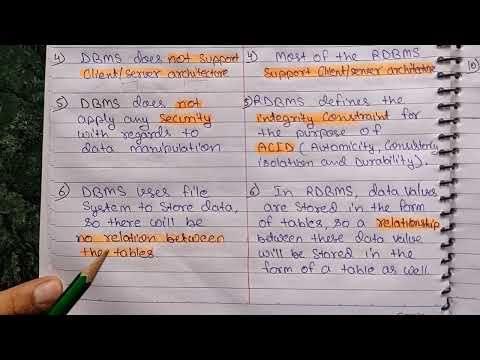 4) DBMS does not support
Client/server architecture
5) DBMS does not
apply any security
with regards to
data manipulation
6) DBMS uses file
system to store data,
so there will be
no relation between
the tables
4) Most of the RDBMS
Support Client/server architecture
5) RDBMS defines the
integrity constraint for
the purpose of
ACID (Automicity, Consistency
isolation and Durability).
6) In RDBMS, data values
are stored in the form
of tables, so a relationship
between these data value
will be stored in the
form of a table as well.
10)